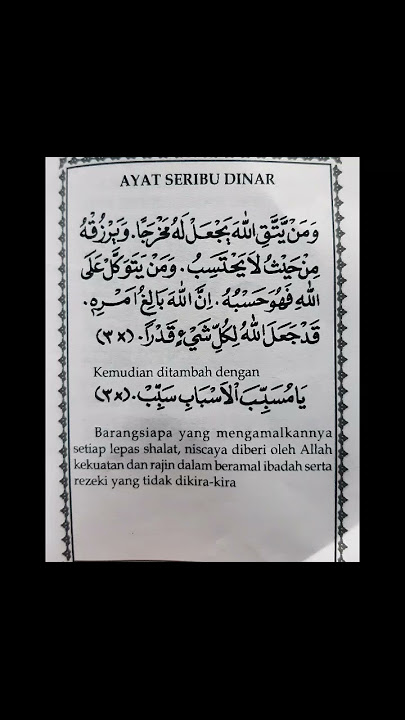 AYAT SERIBU DINAR
وَمَنْ يَتَّقِ اللهَ يَجْعَلْ لَهُ مَخْرَجًا. وَيَرْزُقْهُ
مِنْ حَيْثُ لَا يَحْتَسِبُ. وَمَنْ يَتَوَكَّلْ عَلَى
اللهِ فَهُوَ حَسْبُهُ. اِنَّ اللهَ بَالِغُ اَمْرِهِ.
قَدْ جَعَلَ اللهُ لِكُلِّ شَيْءٍ قَدْرًا. (٣×)
Kemudian ditambah dengan
يَا مُسَبِّبَ الْاَسْبَابِ سَبِّبْ. (٣×)
Barangsiapa yang mengamalkannya
setiap lepas shalat, niscaya diberi oleh Allah
kekuatan dan rajin dalam beramal ibadah serta
rezeki yang tidak dikira-kira